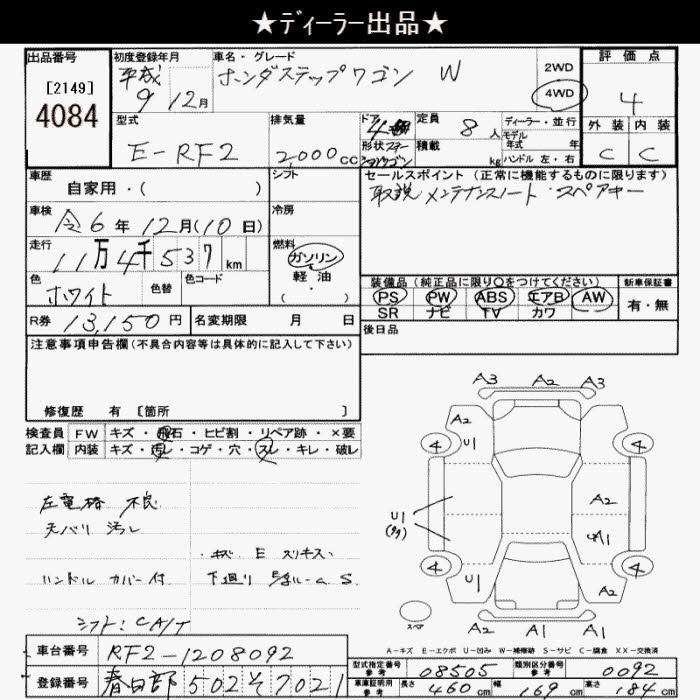 ★ディーラー出品★
出品番号
[2149]
4084
初度登録年月
平成
9 12月
車名・グレード
ホンダステップワゴン W
2WD
4WD
評価点
4
外装 内装
C C
型式
E-RF2
排気量
2000cc
ドア
4
形状
定員
8人
積載
kg
ディーラー・並行
モデル
年式 年
ハンドル 左・右
車歴
自家用・( )
シフト
セールスポイント (正常に機能するものに限ります)
取説 メンテナンスノート・スペアキー
車検
令6年 12月(10日)
冷房
走行
11万4千537km
燃料
ガソリン
軽・油
( )
色
ホワイト
色替
色コード
装備品 (純正品に限り○をつけてください)
PS PW ABS エアB AW
SR ナビ TV カワ
新車保証書
有・無
R券 13,150円
名変期限 月 日
後日品
注意事項申告欄 (不具合内容等は具体的に記入して下さい)
修復歴 有 [箇所 ]
検査員
記入欄
FW キズ・飛石・ヒビ割・リペア跡・×要
内装 キズ・汚レ・コゲ・穴・スレ・キレ・破レ
左電格 不良
天バリ 汚レ
・キズ E スリキズ・
ハンドル カバー付
下廻り S
シフト:CA/T
A3 A2 A3
A2
4 U1 4
A2
U1
A1
4 4
U1 A2
A2 A1 A1
A-キズ E-エクボ U-凹み W-補修跡 S-サビ C-腐食 XX-交換済
車台番号 RF2-1208092
登録番号 春日部 502 そ 7021
型式指定番号
参考
08505
類別区分番号
参考
0092
車庫証明用
参考
長さ 460cm 幅 169cm 高さ 184cm